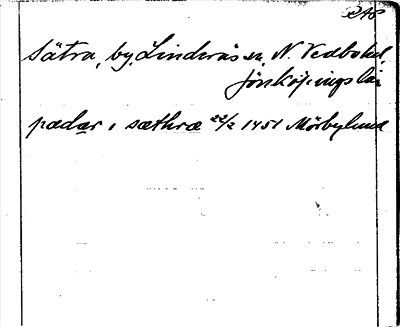 248
Sätra, by, Linderås sn, N. Vedbo hd,
Jönköpings län
pædær i sæthræ 22/2 1451 Mörbylund